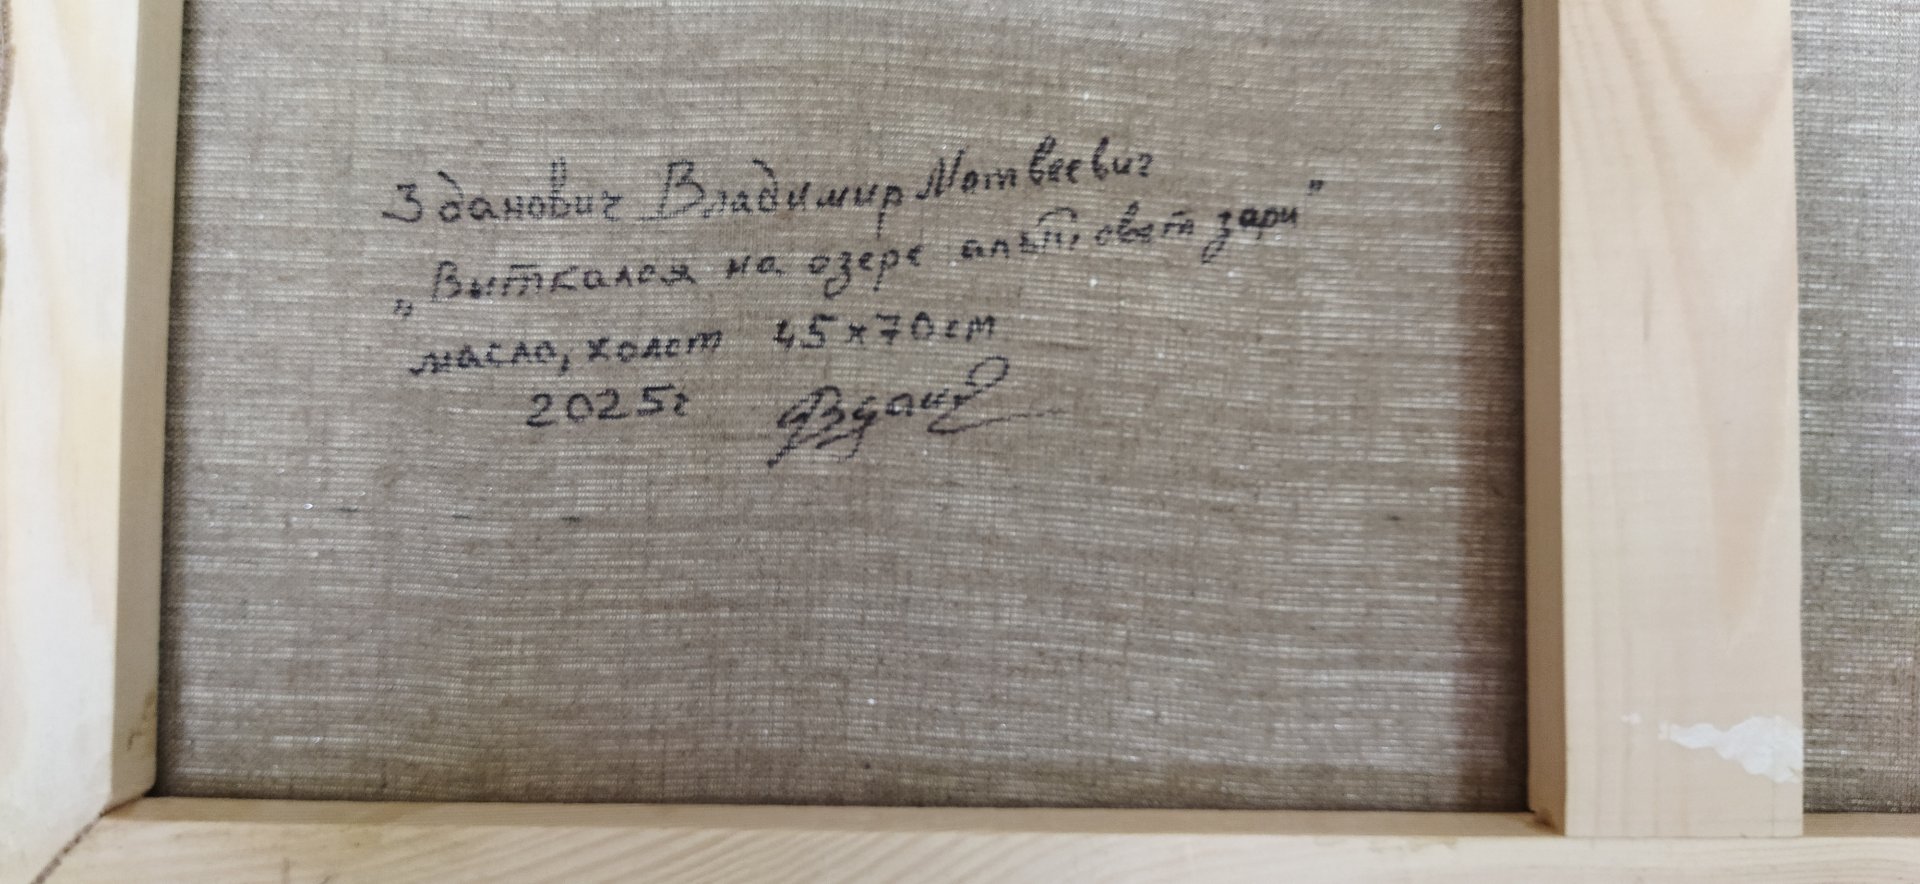 Зданович Владимир Матвеевич
„Выткался на озере алый свет зари”
масло, холст 45х70см
2025г Здан